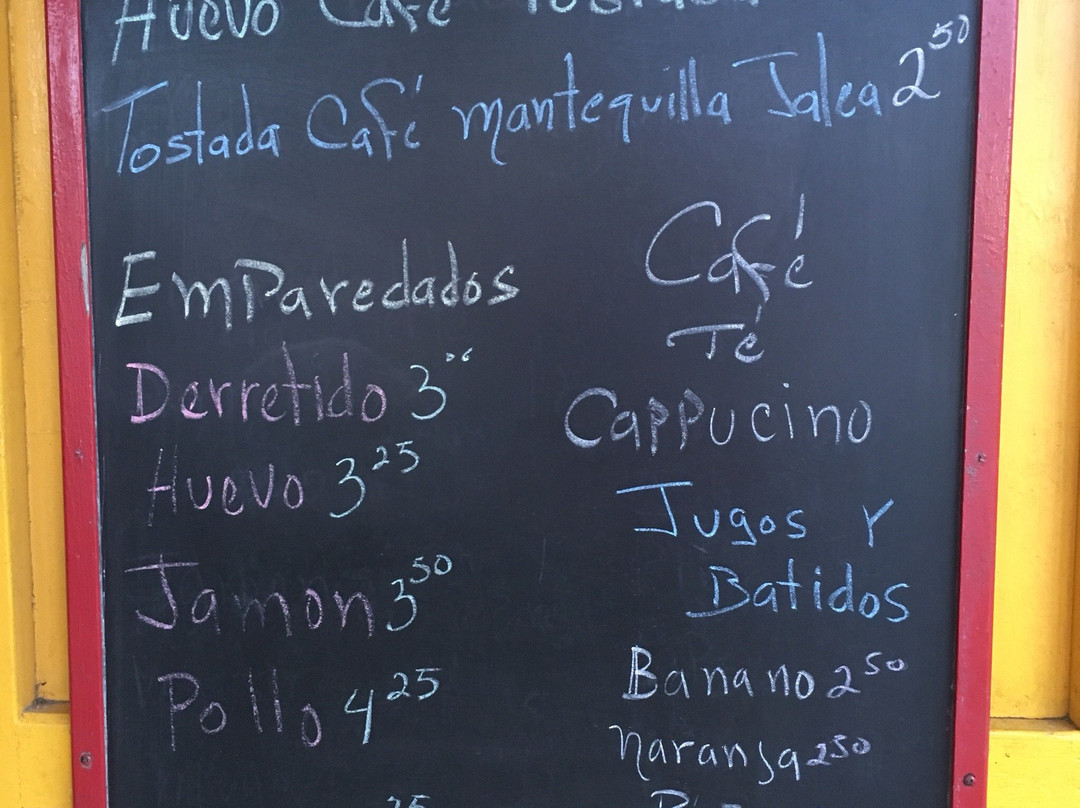 Huevo Café Tostada
Tostada Café mantequilla Jalea 2 50
Emparedados
Derretido 3 00
Huevo 3 25
Jamon 3 50
Pollo 4 25
25
Café
Té
Cappucino
Jugos Y
Batidos
Banano 2 50
naranja 2 50